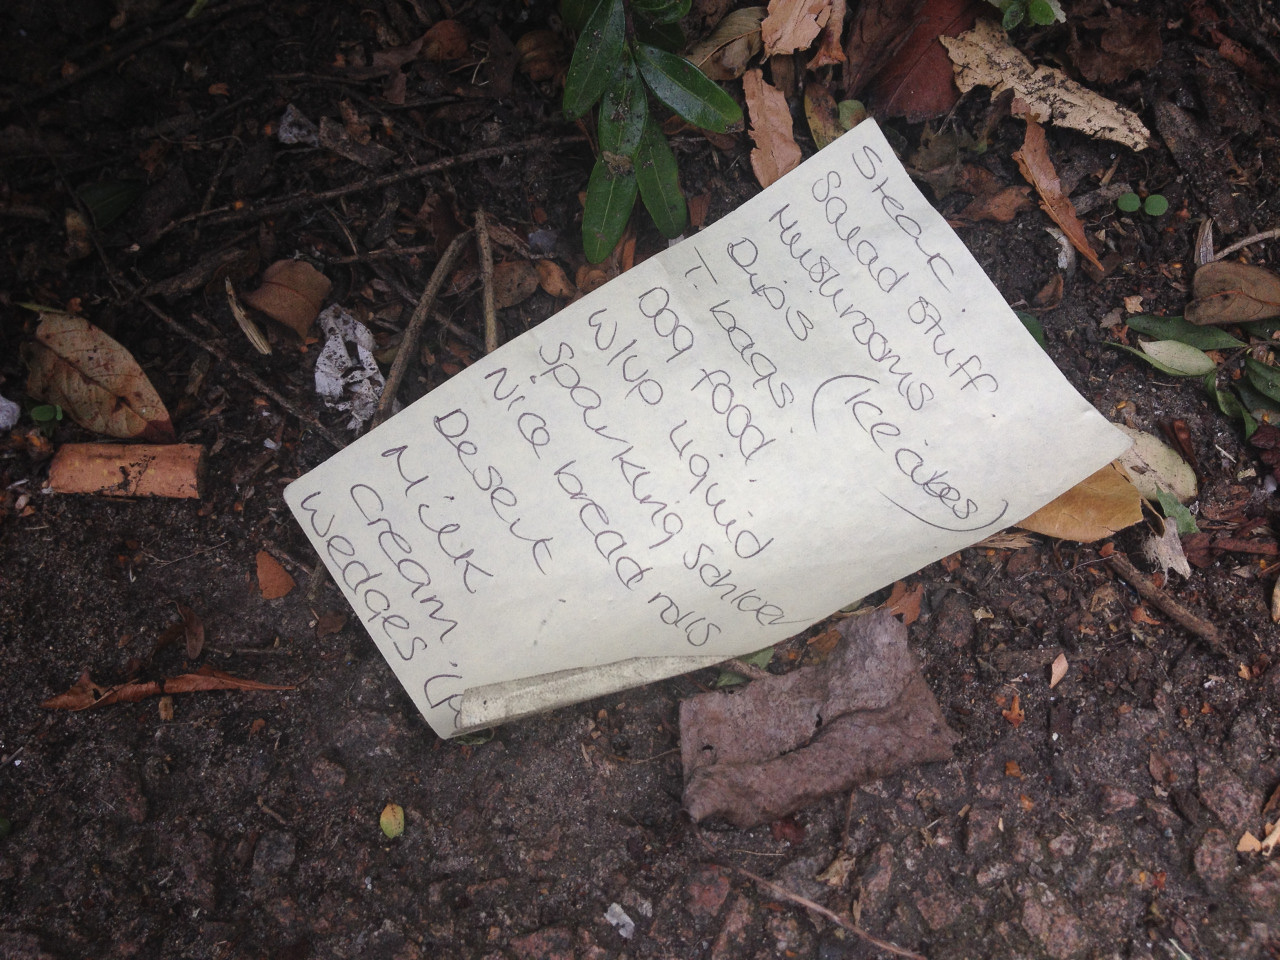 Steak.
Salad stuff.
Mushrooms
Dips (Ice cubes)
T. bags
Dog food.
W/up liquid
Sparkling Schloer
Nice bread rolls
Desert
Milk
Cream
Wedges